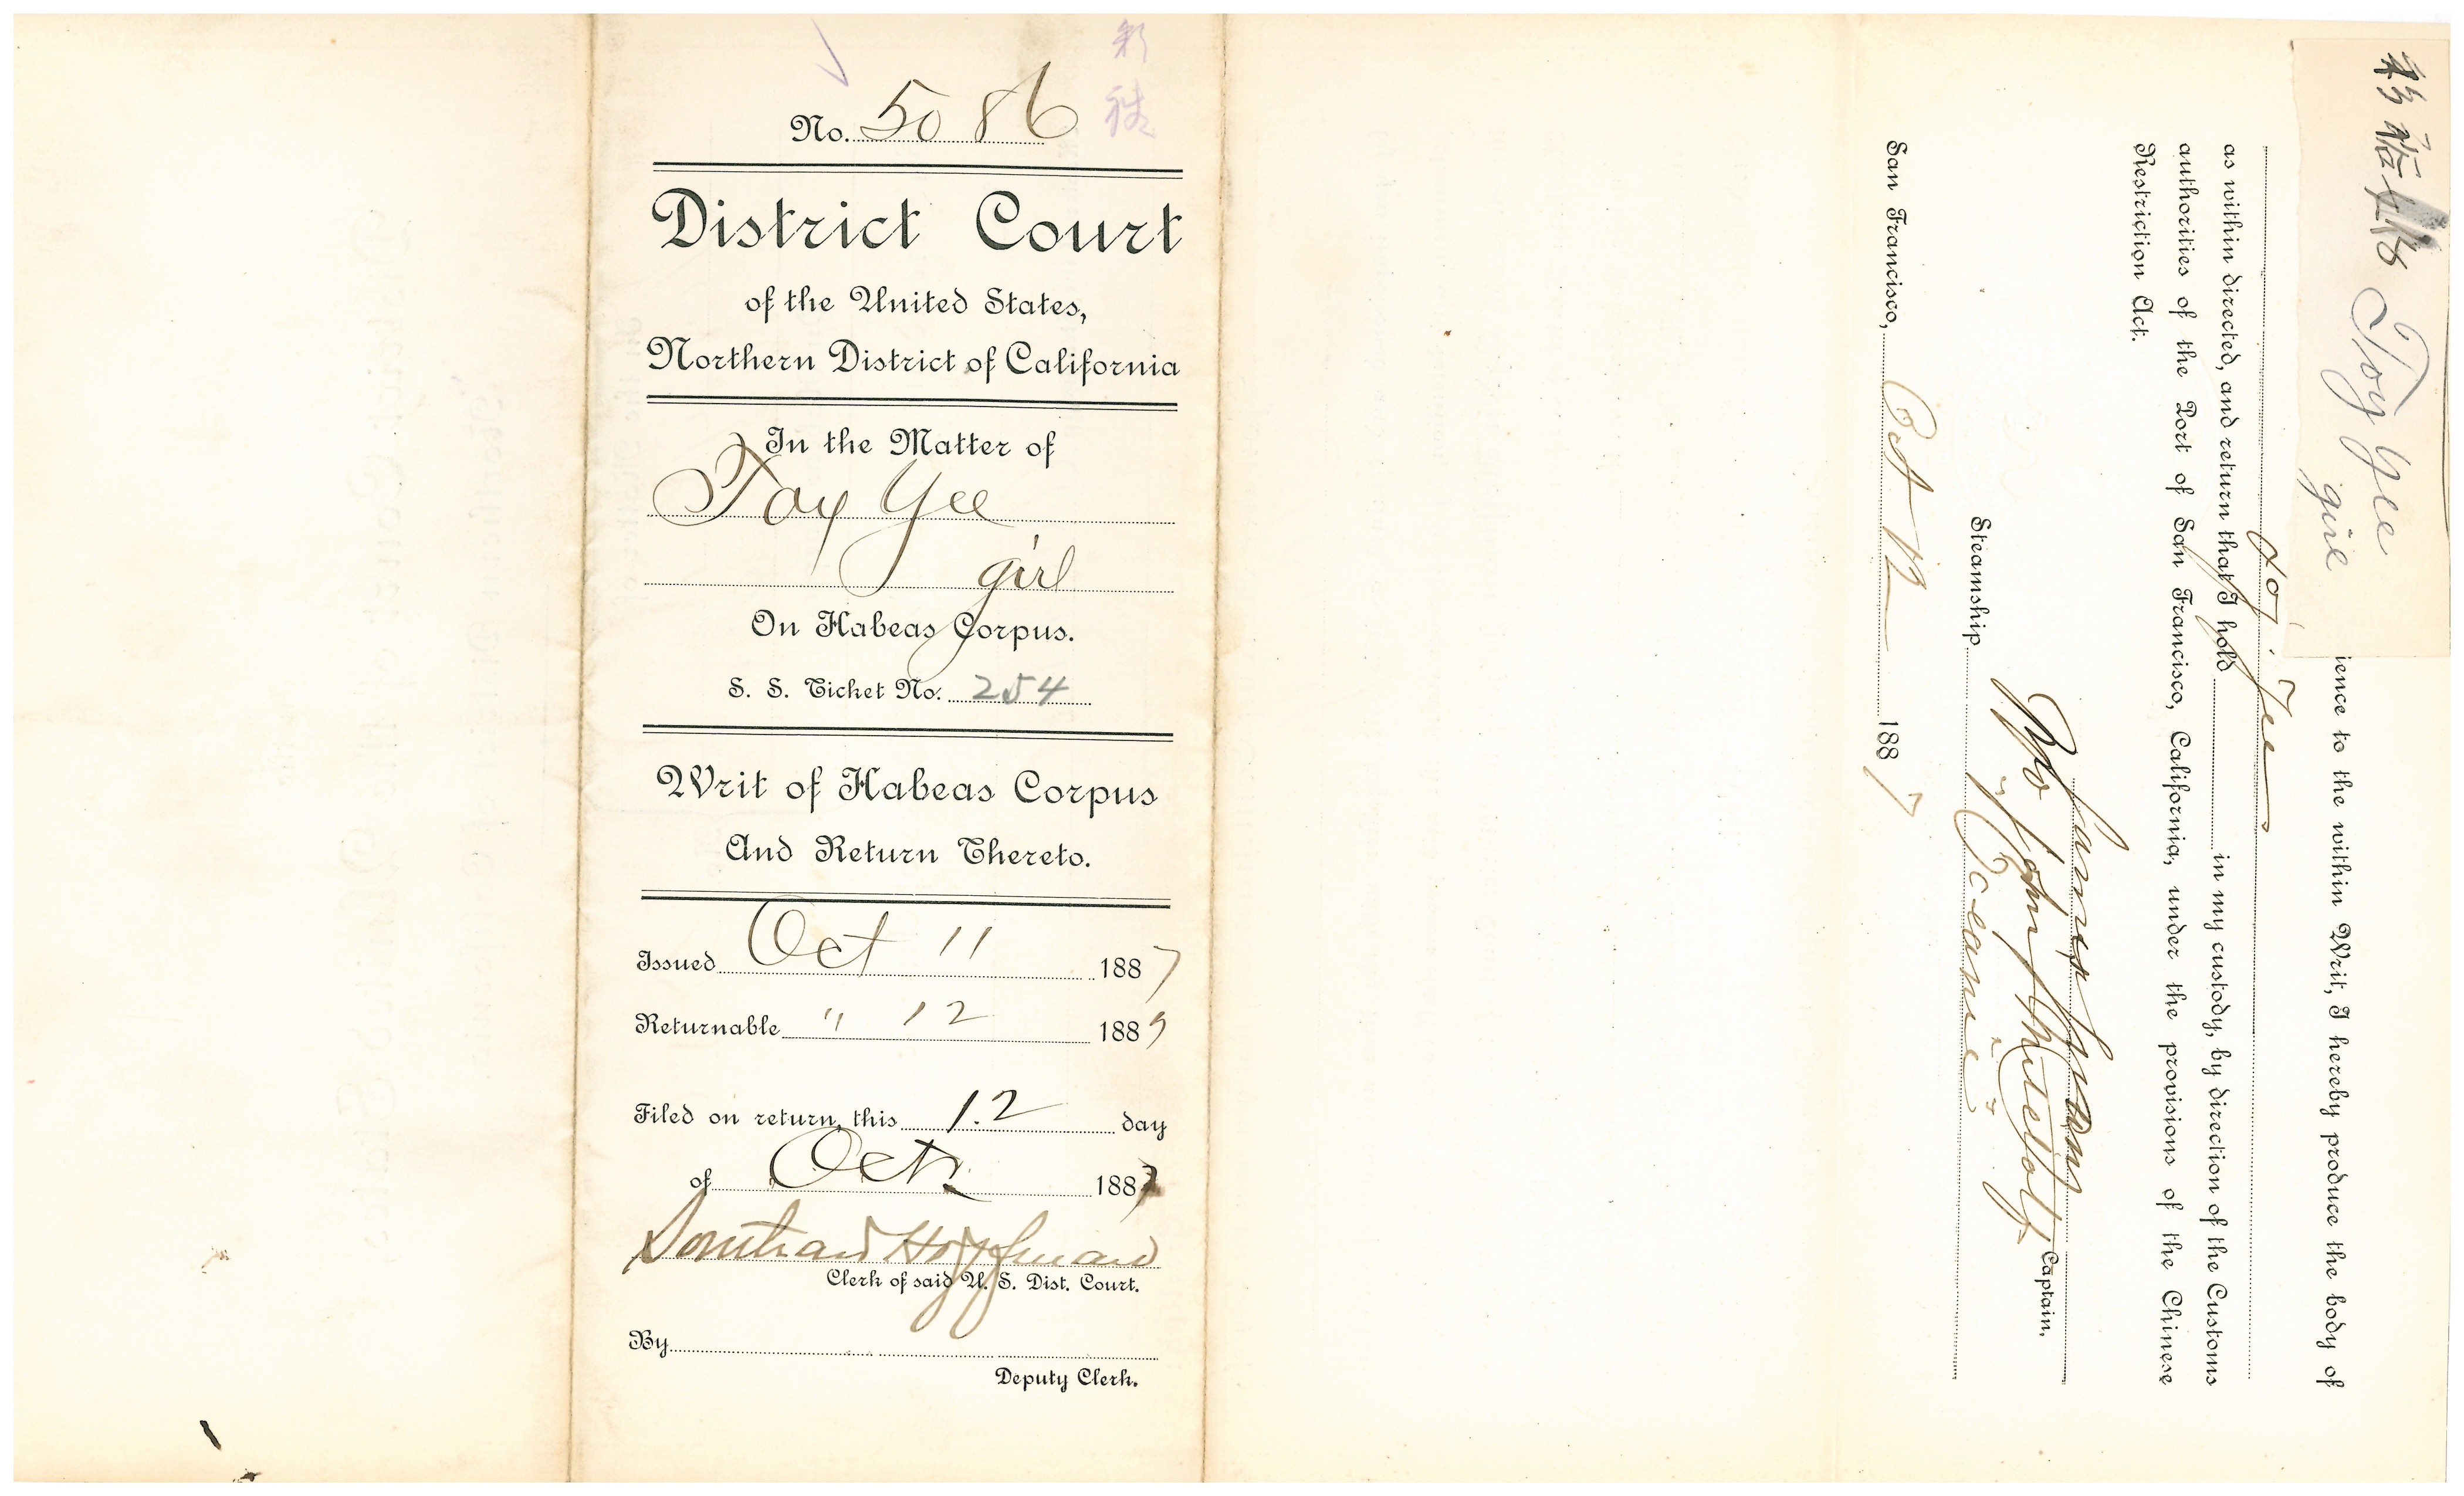 No. 5086
District Court
of the United States,
Northern District of California
In the Matter of
Toy Yee
girl
On Habeas Corpus.
S. S. Ticket No. 254
Writ of Habeas Corpus
And Return Thereto.
Issued Oct 11 1887
Returnable " 12 1887
Filed on return, this 12 day
of Oct 1887
Southard Hoffman
Clerk of said U. S. Dist. Court.
By
Deputy Clerk.
Toy Yee
girl
ience to the within Writ, I hereby produce the body of
Toy Yee
as within directed, and return that I hold in my custody, by direction of the Customs
authorities of the Port of San Francisco, California, under the provisions of the Chinese
Restriction Act.
Captain,
Steamship "Oceanic"
San Francisco, Oct 12 1887